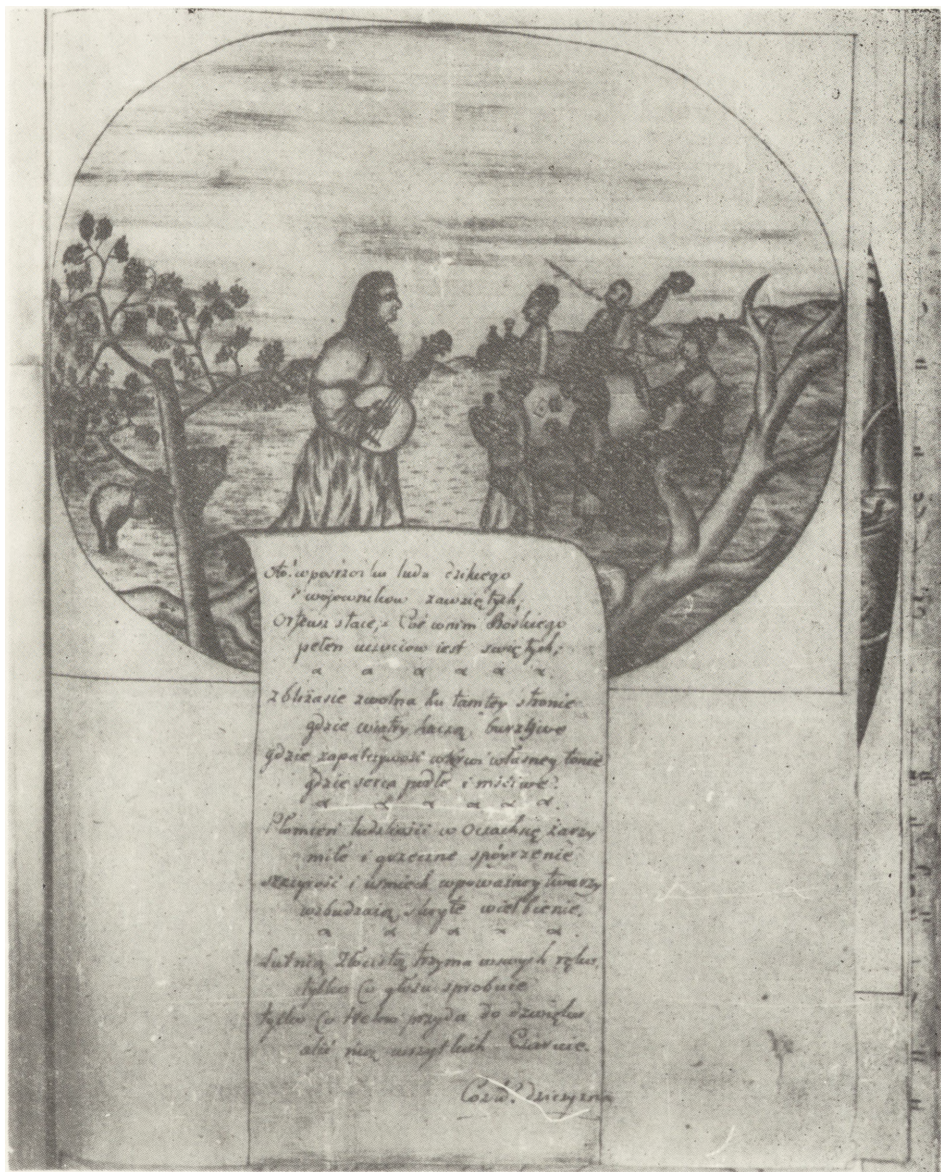 Oto wpośrzod ludu dzikiego
i woiownikow zawziętych,
Orfeusz staie, Coś wnim Boskiego
pełen uczuciow iest swiętych;
zbliżasie zwolna ku tamtey stronie
gdzie wiatry burzliwe
gdzie zapalczywość wkrwi własney tonie
gdzie serca podłe i mściwe:
Płomień ludzkości w Oczachsię żarzy
miłe i grzeczne spóyrzenie
szczyrość i usmiech wpoważney twarzy
wzbudzaią skryte wielbienie.
Lutnią złocistą trzyma wswych ręku,
tylko Co głosu sprobuie
tylko Co słowo przyda do dzwięku
alić nią wszystkich Czaruie.